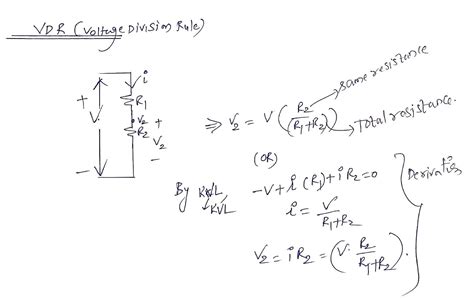 VDR (Voltage Division Rule)
i
+
V
-
R1
V2
R2
+
V2
-
⇒ V2 = V (R2/(R1+R2))
same resistance
Total resistance.
(OR)
By KVL
KVL
-V + i(R1) + iR2 = 0
i = V/(R1+R2)
V2 = iR2 = (V. R2/(R1+R2)).